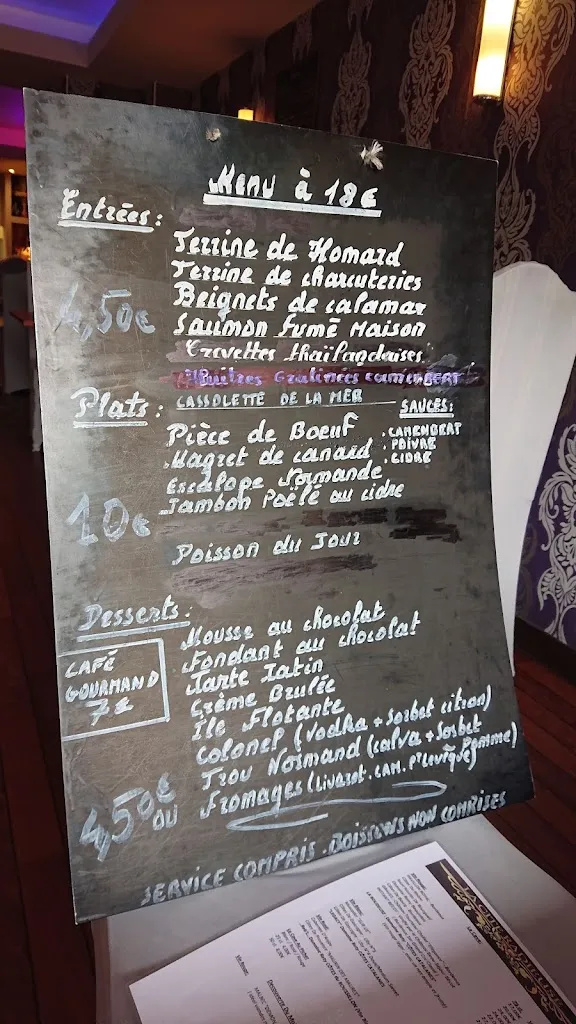 Menu à 18€
Entrées:
4,50€
Terrine de Homard
Terrine de charcuteries
Beignets de calamar
Saumon fumé Maison
Crevettes thaïlandaises
Huîtres Gratinées camemBERT
CASSOLETTE DE LA MER
Plats:
10€
SAUCES:
. CAMEMBERT
. POIVRE
. CIDRE
Pièce de Boeuf
Magret de canard
Escalope Normande
Jambon Poêlé au cidre
Poisson du Jour
Desserts:
CAFÉ
GOURMAND
7€
4,50€
OU
Mousse au chocolat
Fondant au chocolat
Tarte Tatin
Crème Brulée
Île Flotante
Colonel (Vodka + Sorbet citron)
Trou Normand (calva + Sorbet
Pomme)
Fromages (Livarot. CAM. Pt Levêque)
SERVICE COMPRIS . BOISSONS NON COMPRISES